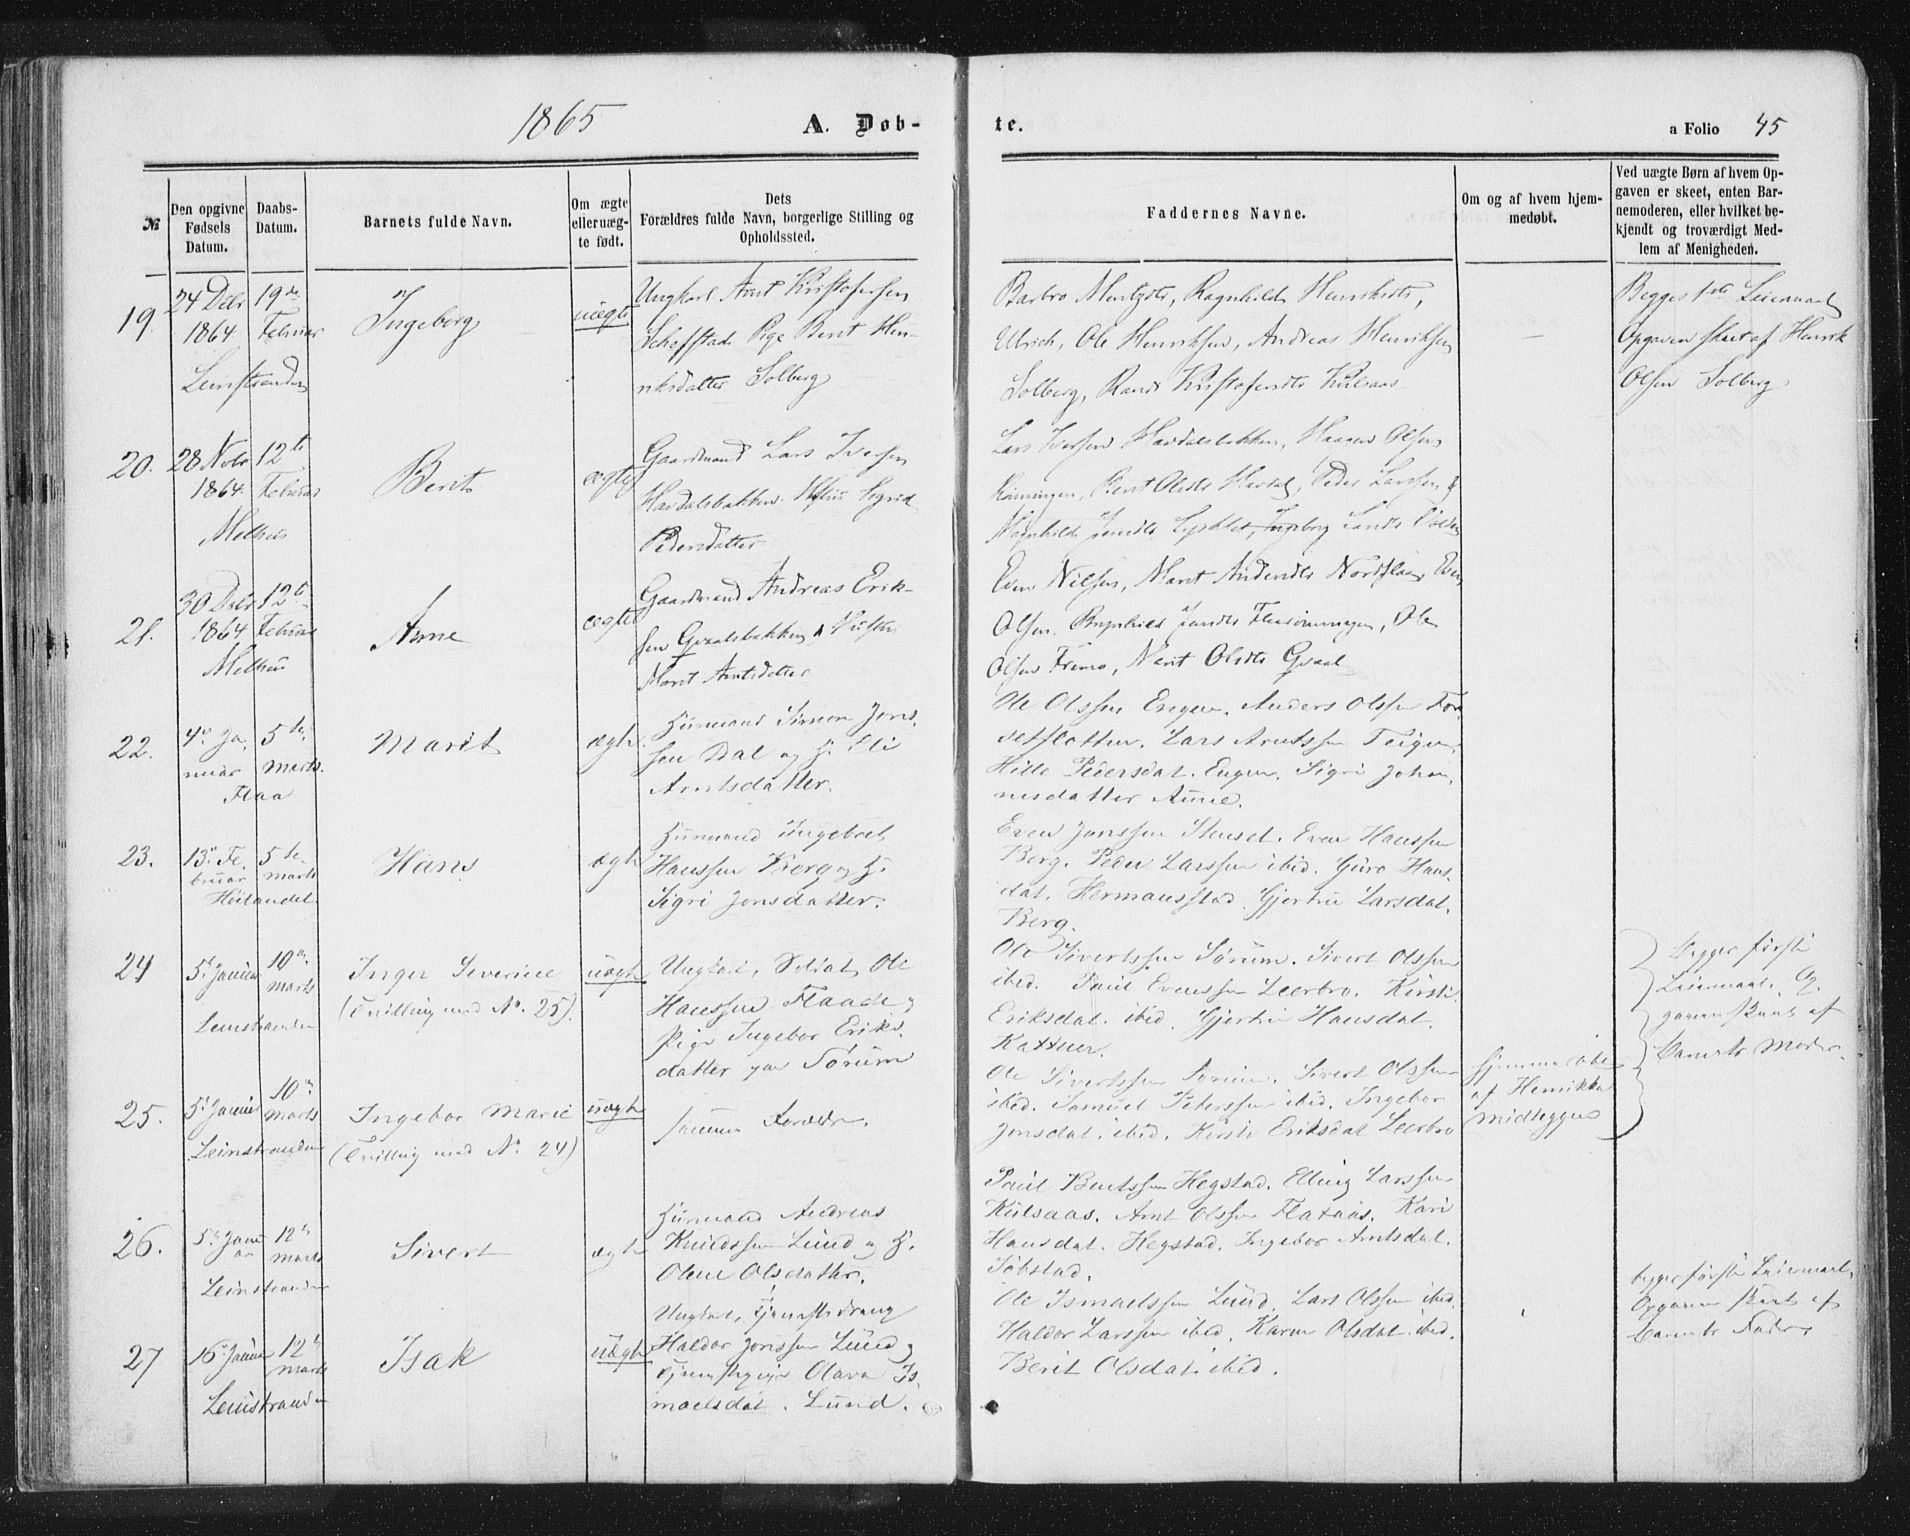 1865
A. Døb-
te.
a Folio 45
№
Den opgivne Fødsels Datum.
Daabs-Datum.
Barnets fulde Navn.
Om ægte eller uægte født.
Dets Forældres fulde Navn, borgerlige Stilling og Opholdssted.
Faddernes Navne.
Om og af hvem hjemmedøbt.
Ved uægte Børn af hvem Opgaven er skeet, enten Barnemoderen, eller hvilket bekjendt og troværdigt Medlem af Menigheden.
19.
24 Debr
1864
Leinstranden
19de
Februar
Ingeborg
uægte
Ungkarl Arnt Kristofersen
Pige Berit Hen-
riksdatter Solberg
Ragnhild Henriksdtr,
Ulrich, Ole Henriksen, Andreas Henriksen
Solberg, Randi Kristofersdtr Kulsaas
—
Begges 1ste Leiermaal
Opgaven skeet af Henrik
Olsen Solberg
20.
28 Novbr
1864.
Melhus
12te
Februar
Berit
ægte
Gaardmand Lars Iversen
Havdalsbakken Hustru Sigrid
Pedersdatter
Lars Iversen Havdalsbakken, Haagen Olsen
Berit Olsdtr Havdal, Peder Larssen
Ingeborg
21.
30 Debr
1864
Melhus
12te
Februar
Arne
ægte
Gaardmand Andreas Erik-
sen Gvaalsbakken & Hustru
Marit Arntsdatter
Even Nilsen, Marit Nordflaa, Even
Olsen, Ole
Olsen Fremo, Marit Olsdtr Gvaal
22.
4de Ja-
nuar
Flaa
5te
Marts.
Marit
ægte.
Huusmand Simon Jons-
sen Dal og H. Eli
Arntsdatter.
Ole Olssen Engen. Anders Olssen For-
setflotten. Lars Arntssen Teigen.
Pedersdat. Engen. Sigri Johan-
nesdatter Aune.
23.
13de Fe-
bruar
Høilandet
5te
Marts
Hans
ægte
Huusmand Ingebret
Hanssen Berg og H.
Sigri Jonsdatter.
Even Jonssen Stenset. Even Hanssen
Berg. Peder Larssen ibid. Guro Hans-
dat. Hermansstad. Gjertru Larsdat.
Berg.
24
5te Januar
Leinstranden
10de
Marts
Inger Severine
(Tvilling med No. 25).
uægte
Ungkarl, Soldat Ole
Hanssen Flaade og
Pige Ingebor Eriks-
datter paa Sørum
Ole Sivertssen Sørum. Sivert Olssen
ibid. Paul Evenssen Leerbro. Kirsti
Eriksdat. ibid. Gjertru Hansdat.
Kattuer.
Begges første
Leiermaal. Op-
gaven skeet af
Barnets Moder.
25.
5te Januar
Leinstranden
10de
Marts
Ingebor Marie
(Tvilling med No. 24)
uægte
samme Forældre.
Ole Sivertssen Sørum. Sivert Olssen
ibid. Samuel Peterssen ibid. Ingebor
Jonsdat. ibid. Kirsti Eriksdat Leerbro
Hjemmedøbt
af Henrikka
Midteggen
26.
5te Janu
ar
Leinstranden
12te
Marts
Sivert
ægte
Huusmand Andreas
Knudssen Lund og H.
Olene Olsdatter.
Paul Berntssen Hegstad. Elling Larssen
Kulsaas. Arnt Olssen Flataas. Kari
Hansdat. Hegstad. Ingebor Arntsdat.
Søbstad.
27
16de Januar
Leinstranden
12te
Marts
Isak
uægte
Ungkarl, Tjenestedreng
Haldor Jonssen Lund og
Tjenestepige Olava Is-
maelsdat. Lund.
Ole Ismaelssen Lund. Lars Olssen ibid.
Haldor Larssen ibid. Karen Olsdat. ibid.
Berit Olsdat. ibid.
Begges første Leiermaal.
Opgaven skeet af
Barnets Fader.